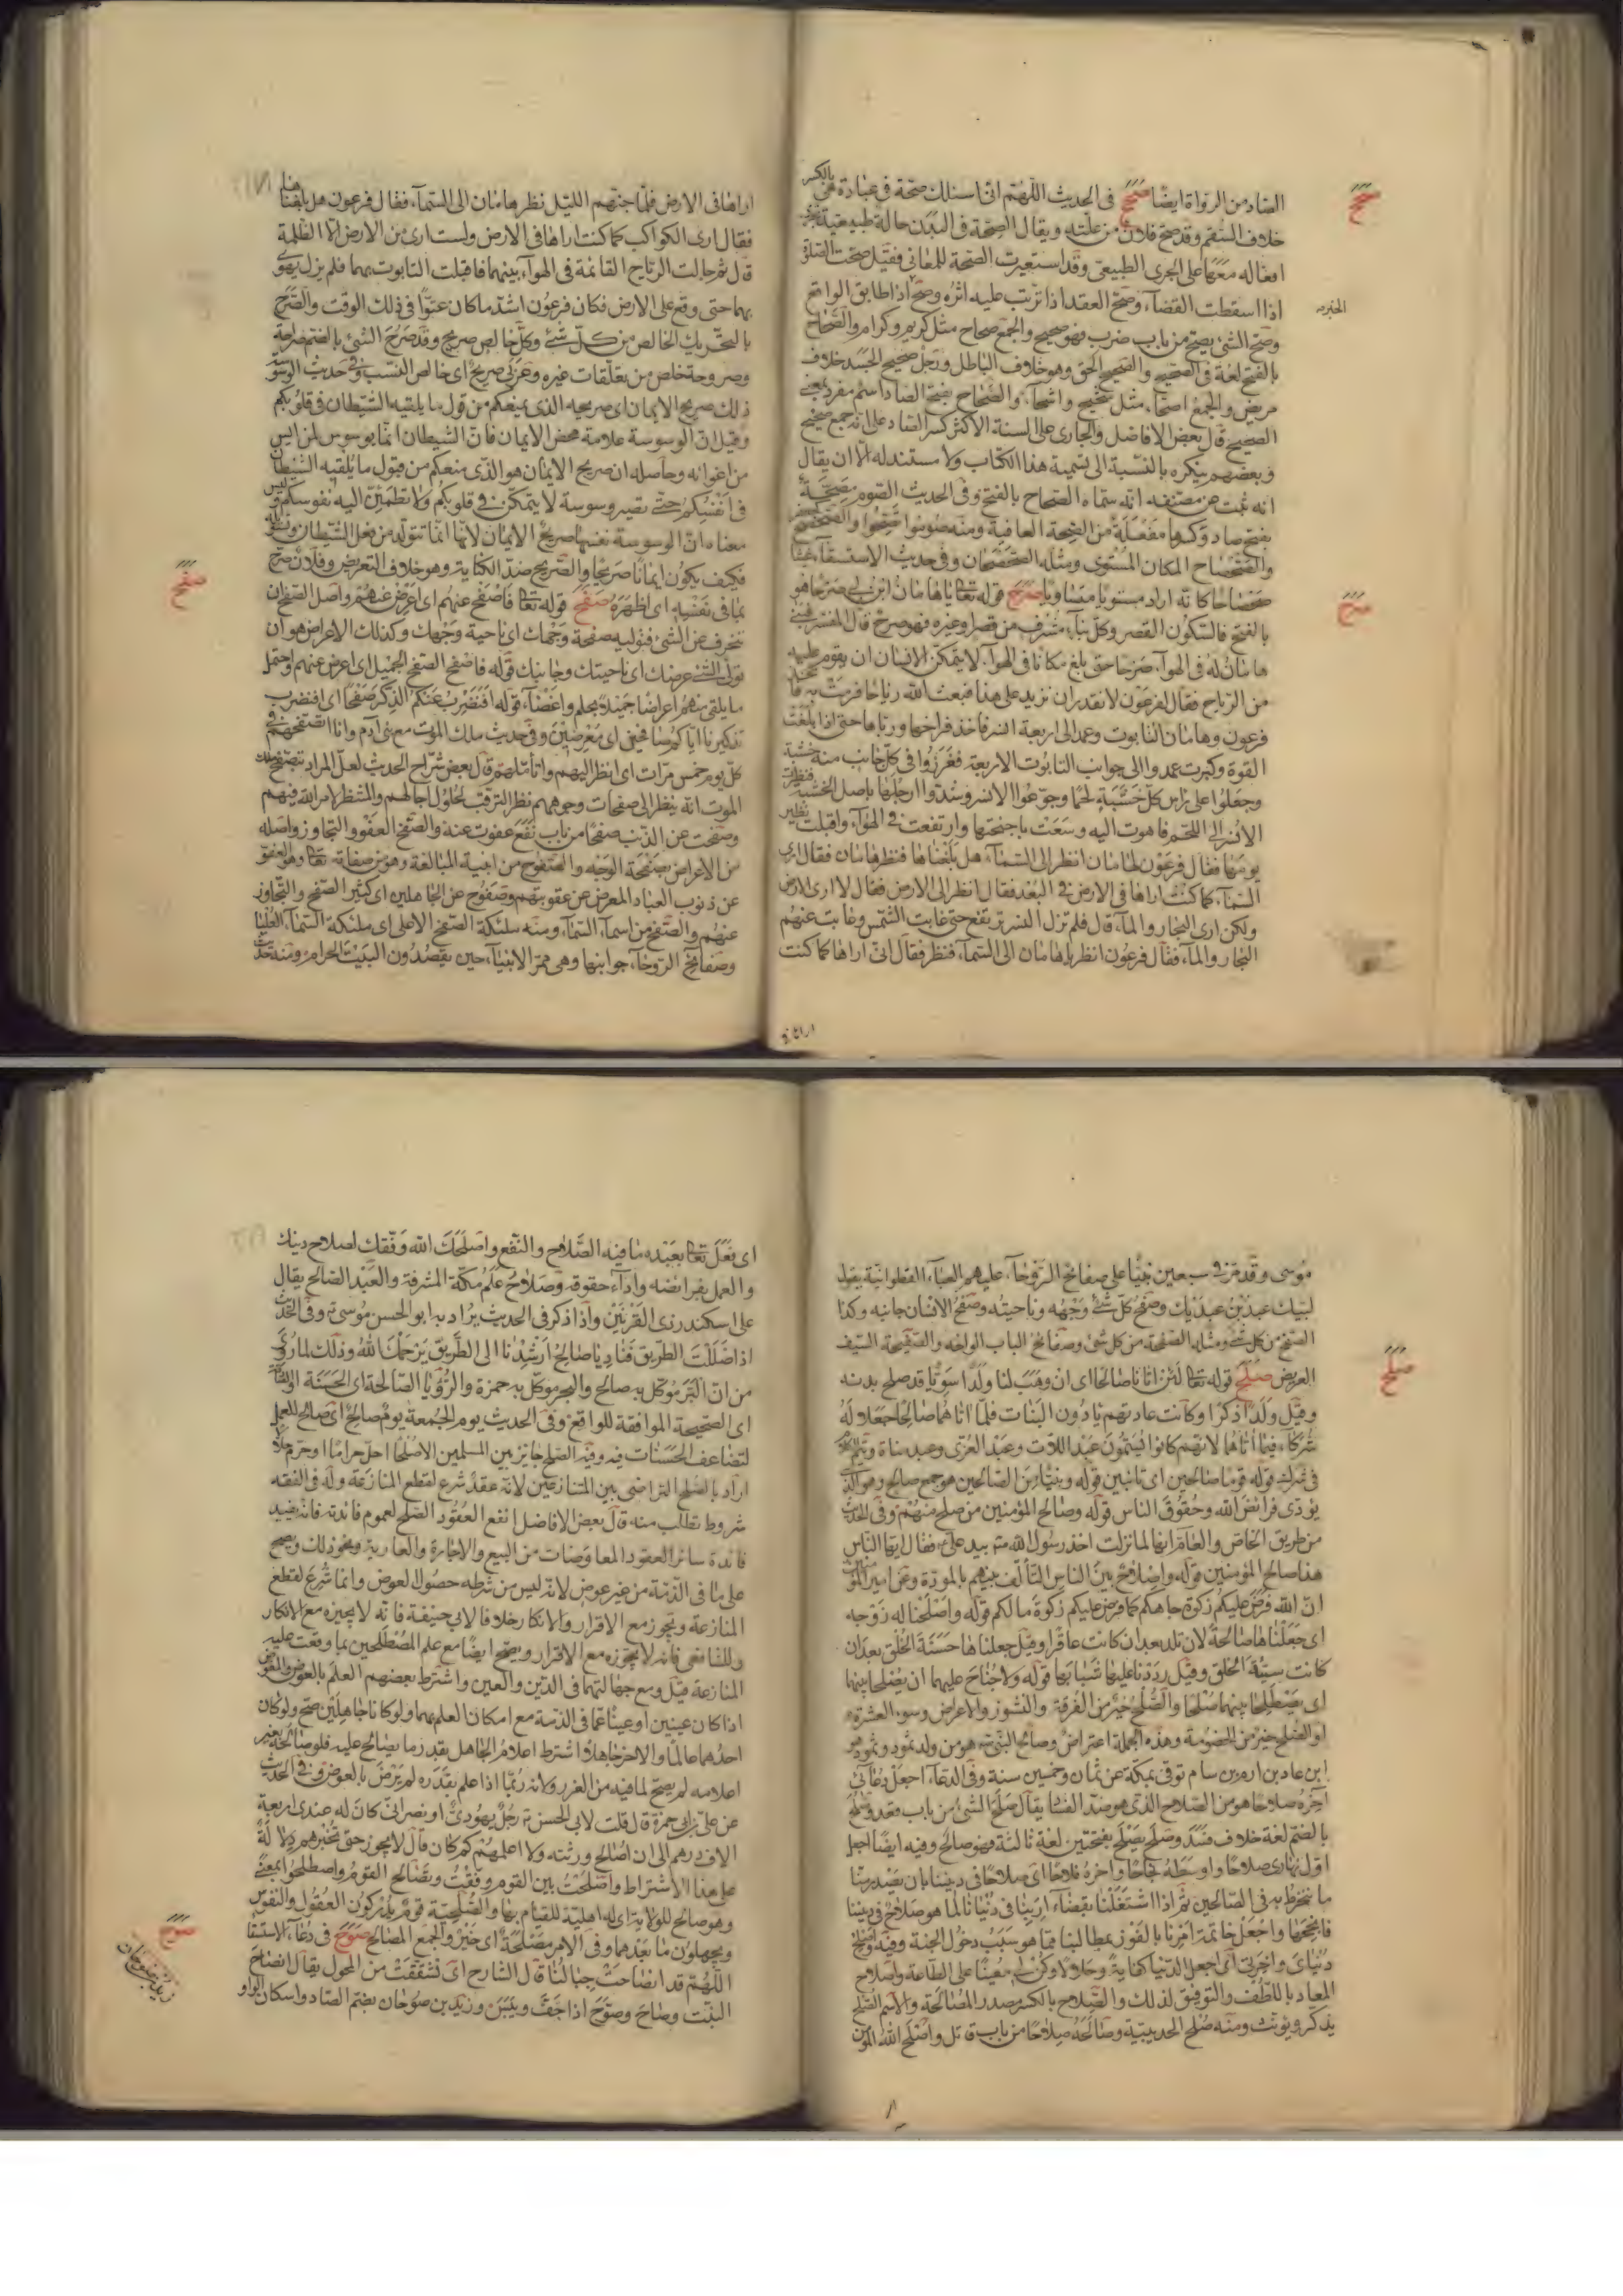 الصاد من الرواة ايضا صحح فى الحديث اللّهمّ انى اسئلك صحّة فى عبادة هى بالكسر
خلاف السّقم وقد صح فلان من علّته ويقال الصّحة فى البدن حالة طبيعيّة تجرى
افعاله معها على المجرى الطبيعى وقد استعيرت الصّحة للمعانى فقيل صحّت الصّلوة
اذا اسقطت القضآء وصحّ العقد اذا ترتّب عليه اثره وصحّ الخبر اذا طابق الواقع
وصحّ الشئ يصحّ من باب ضرب فهو صحيح والجمع صحاح مثل كريم وكرام والصّحاح
بالفتح لغة فى الصّحيح والصّحيح الحق وهو خلاف الباطل ورجل صحيح الجسد خلاف
مريض والجمع اصحّاء مثل شحيح واشحّاء والصّحاح بفتح الصّاد اسم مفرد بمعنى
الصّحيح قال بعض الافاضل والجارى على السنة الاكثر كسر الصّاد على انّه جمع صحيح
وبعضهم ينكره بالنّسبة الى تسمية هذا الكتاب ولا مستند له الّا ان يقال
انه ثبت عن مصنّفه انّه سمّاه الصّحاح بالفتح وفى الحديث الصّوم مصحّة
بفتح صاد وكسرها مفعلة من الصّحة العافية ومنه صوموا تصحّوا والصّحصح
والصّحصاح المكان المستوى ومثله الصّحصحان وفى حديث الاستسقآء غيثا
صحصاحا كانّه اراد مستويا متساويا صرح قوله تعالى يا هامان ابن لى صرحا هو
بالفتح فالسّكون القصر وكلّ بنآء مشرف من قصر او غيره فهو صرح قال المفسّر فبنى
هامان له فى الهوآء صرحا حتى بلغ مكانا فى الهوآء لا يتمكّن الانسان ان يقوم عليه
من الرّياح فقال لفرعون لا نقدر ان نزيد على هذا فبعث اللّه رياحا فرمت به فاتخذ
فرعون وهامان التابوت وعمدا الى اربعة انسر فاخذ فراخها وربّاها حتى اذا بلغت
القوة وكبرت عمدوا الى جوانب التابوت الاربعة فغرزوا فى كلّ جانب منه خشبة
وجعلوا على راس كلّ خشبة لحما وجوّعوا الانسر وشدّوا ارجلها باصل الخشبة فنظرت
الانسر الى اللّحم فاهوت اليه وسعت باجنحتها وارتفعت فى الهوآء واقبلت تطير
يومها فقال فرعون لهامان انظر الى السّمآء هل بلغناها فنظر هامان فقال ارى
السّمآء كما كنت اراها فى الارض فى البعد فقال انظر الى الارض فقال لا ارى الارض
ولكن ارى البحار والمآء قال فلم تزل النسر ترتفع حتى غابت الشّمس وغابت عنهم
البحار والمآء فقال فرعون انظر يا هامان الى السّمآء فنظر فقال انّى اراها كما كنت
صحح
الخبر صح
صرح
اراها فى
اراها فى الارض فلمّا جنّهم اللّيل نظر هامان الى السّمآء فقال فرعون هل بلغناها
فقال ارى الكواكب كما كنت اراها فى الارض ولست ارى من الارض الّا الظلمة
قال ثم حالت الرّياح القائمة فى الهوآء بينهما فاقبلت التابوت بهما فلم يزل يهوى
بهما حتى وقع على الارض فكان فرعون اشدّ ما كان عتوّا فى ذلك الوقت والصّرح
بالتحريك الخالص من كل شئ وكلّ خالص صريح وقد صرح الشئ بالضم صراحة
وصروحة خلص من تعلّقات غيره وعربى صريح اى خالص النّسب وفى حديث الوسوسة
ذلك صريح الايمان اى صريحه الذى يمنعكم من قول ما يلقيه الشّيطان فى قلوبكم
وقيل انّ الوسوسة علامة محض الايمان فانّ الشيطان انّما يوسوس لمن ليس
من اعوانه وحاصله ان صريح الايمان هو الذى منعكم من قبول ما يلقيه الشّيطان
فى انفسكم حتى تصير وسوسة لا يتمكّن فى قلوبكم ولا تطمئنّ اليه نفوسكم وليس
معناه انّ الوسوسة نفسها صريح الايمان لانّها انّما تتولّد من فعل الشّيطان وتسويله
فكيف يكون ايمانا صريحا والتّصريح ضدّ الكناية وهو خلاف التعريض وفلان صرّح
بما فى نفسه اى اظهره صفح قوله تعالى فاصفح عنهم اى اعرض عنهم واصل الصّفح ان
تنحرف عن الشئ فتولّيه صفحة وجهك اى ناحية وجهك وكذلك الاعراض هو ان
تولّى الشئ عرضك اى ناحيتك وجانبك قوله فاصفح الصّفح الجميل اى اعرض عنهم واحتمل
ما يلقى منهم اعراضا جميلا بحلم واغضآء قوله افنضرب عنكم الذّكر صفحا اى افنضرب
تذكيرنا ايّاكم صافحين اى معرضين وفى حديث ملك الموت مع بنى آدم وانا اتصفّحهم فى
كلّ يوم خمس مرّات اى انظر اليهم واتأمّلهم قال بعض شرّاح الحديث لعلّ المراد بتصفّح ملك
الموت انّه ينظر الى صفحات وجوههم نظر الترقّب لحلول آجالهم والمنتظر لامر اللّه فيهم
وصفحت عن الذّنب صفحا من باب نفع عفوت عنه والصّفح العفو والتجاوز واصله
من الاعراض بصفحة الوجه والصّفوح من ابنية المبالغة وهو من صفاته تعالى وهو العفوّ
عن ذنوب العباد المعرض عن عقوبتهم وصفوح عن الجاهلين اى كثير الصّفح والتّجاوز
عنهم والصّفح من اسمآء السّمآء ومنه ملئكة الصّفح الاعلى اى ملئكة السّمآء العليا
وصفائح الرّوحآء جوانبها وهى ممرّ الانبيآء حين يقصدون البيت الحرام ومنه حديث
صفح
موسى وقد مرّ فى سبعين نبيّا على صفائح الرّوحآء عليهم العبآء القطوانيّة يقول
لبّيك عبدك بن عبديك وصفح كلّ شئ وجهه وناحيته وصفح الانسان جانبه وكذا
الصّفح من كل شئ ومثله الصّفحة من كلّ شئ وصفائح الباب الواحه والصّفيحة السّيف
العريض صلح قوله تعالى لئن آتانا صالحا اى ان وهب لنا ولدا سويّا قد صلح بدنه
وقيل ولدا ذكرا وكانت عادتهم يأدون البنات فلمّا اتاهما صالحا جعلا له
شركآء فيما اتاهما لانّهم كانوا يسمّون عبد اللّات وعبد العزّى وعبد مناة
قوله قوما صالحين اى تائبين قوله ونبيّا من الصّالحين هو جمع صالح وهو الذى
يؤدّى فرائض اللّه وحقوق الناس قوله وصالح المؤمنين من صلح منهم وفى الحديث
من طريق الخاصّ والعامّ انها لمّا نزلت اخذ رسول اللّه ص بيد على فقال ايّها النّاس
هذا صالح المؤمنين قوله واصلاح بين الناس التألّف بينهم بالمودّة وعن امير المؤمنين
انّ اللّه فرض عليكم زكوة جاهكم كما فرض عليكم زكوة مالكم قوله واصلحنا له زوجه
اى جعلناها صالحة لان تلد بعد ان كانت عاقرا وقيل جعلناها حسنة الخلق بعد ان
كانت سيّئة الخلق وقيل رددنا عليها شبابها قوله ولا جناح عليهما ان يصلحا بينهما
اى يصطلحا بينهما صلحا والصّلح خير من الفرقة والنّشوز والاعراض وسوء العشرة
او الصّلح خير من الخصومة وهذه الجملة اعتراض وصالح النّبى هو من ولد ثمود وثمود هو
ابن عاد بن ارم بن سام توفّى بمكّة عن ثمان وخمسين سنة وفى الدّعآء اجعل دعائى
آخره صلاحا هو من الصّلاح الذى هو ضدّ الفساد يقال صلح الشئ من باب قعد وصلح
بالضّم لغة خلاف فسد وصلح يصلح بفتحتين لغة ثالثة فهو صالح وفيه ايضا اجعل
اوّل نهارى صلاحا واوسطه نجاحا وآخره فلاحا اى صلاحا فى ديننا بان يصدر منّا
ما ننخرط به فى الصّالحين ثمّ اذا اشتغلنا بقضآء اربنا فى دنيانا لما هو صلاح فى ديننا
فانجحها واجعل خاتمة امرنا بالفوز بمطالبنا ممّا هو سبب دخول الجنة وفيه اصلح
دنياى وآخرتى اى اجعل الدّنيا كفاية وحلالا وكن لى معينا على الطّاعة واصلاح
المعاد باللّطف والتوفيق لذلك والصّلاح بالكسر مصدر المصالحة والاسم الصّلح
يذكّر ويؤنّث ومنه صلح الحديبيّة وصالحه صلاحا من باب قاتل واصلح اللّه المؤمن
صلح
اى فعل تعالى بعبده ما فيه الصّلاح والنّفع واصلحك اللّه وفّقك لصلاح دينك
والعمل بفرائضه وادآء حقوقه وصلاح علم مكّة المشرفة والعبد الصّالح يقال
على اسكندر ذى القرنين واذا ذكر فى الحديث يراد به ابو الحسن موسى وفى الحديث
اذا ضللت الطّريق فناد يا صالح ارشدنا الى الطّريق يرحمك اللّه وذلك لما روى
من انّ البرّ موكّل به صالح والبحر موكّل به حمزة والرّؤيا الصّالحة اى الحسنة او الصّادقة
اى الصّحيحة الموافقة للواقع وفى الحديث يوم الجمعة يوم صالح اى صالح للعمل
لتضاعف الحسنات فيه وفيه الصّلح جائز بين المسلمين الّا صلحا احلّ حراما او حرّم حلالا
اراد بالصّلح التراضى بين المتنازعين لانّه عقد شرع لقطع المنازعة وله فى الفقه
شروط تطلب منه قال بعض الافاضل انفع العقود الصّلح لعموم فائدته فانّه يفيد
فائدة سائر العقود المعاوضات من البيع والاجارة والعارية ونحو ذلك ويصحّ
على ما فى الذّمّة من غير عوض لانّه ليس من شرطه حصول العوض وانّما شرع لقطع
المنازعة ويجوز مع الاقرار والانكار خلافا لابى حنيفة فانّه لا يجيزه مع الانكار
وللشافعى فانّه لا يجوّزه مع الاقرار ويصحّ ايضا مع علم المصطلحين بما وقعت عليه
المنازعة قيل ومع جهالتهما فى الدّين والعين واشترط بعضهم العلم بالعوض والمعوّض
اذا كان عينين او عينا عمّا فى الذّمة مع امكان العلم بهما ولو كانا جاهلين صحّ ولو كان
احدهما عالما والآخر جاهلا اشترط اعلام الجاهل بقدر ما يصالح عليه فلو صالحه بغير
اعلامه لم يصحّ لما فيه من الغرر ولانّه ربّما اذا علم بقدره لم يرض بالعوض وفى الحديث
عن علىّ بن ابى حمزة قال قلت لابى الحسن رجل يهودىّ او نصرانىّ كان له عندى اربعة
الاف درهم الى ان اصالح ورثته ولا اعلمهم كم كان قال لا يجوز حتى تخبرهم دلالة
على هذا الاشتراط واصلحت بين القوم وفّقت وتصالح القوم واصطلحوا بمعنى
وهو صالح للولاية اى له اهليّة للقيام بها والصّلحيّة قوم يدركون العقول والنّفوس
ويجهلون ما بعدهما وفى الامر مصلحة اى خير والجمع المصالح صوح فى دعآء الاستسقآء
اللّهمّ قد انصاحت جبالنا قال الشّارح اى تشقّقت من المحول يقال انصاح
النبت وصاح وصوّح اذا جفّ ويبس وزيد بن صوحان بضمّ الصّاد واسكان الواو
صوح